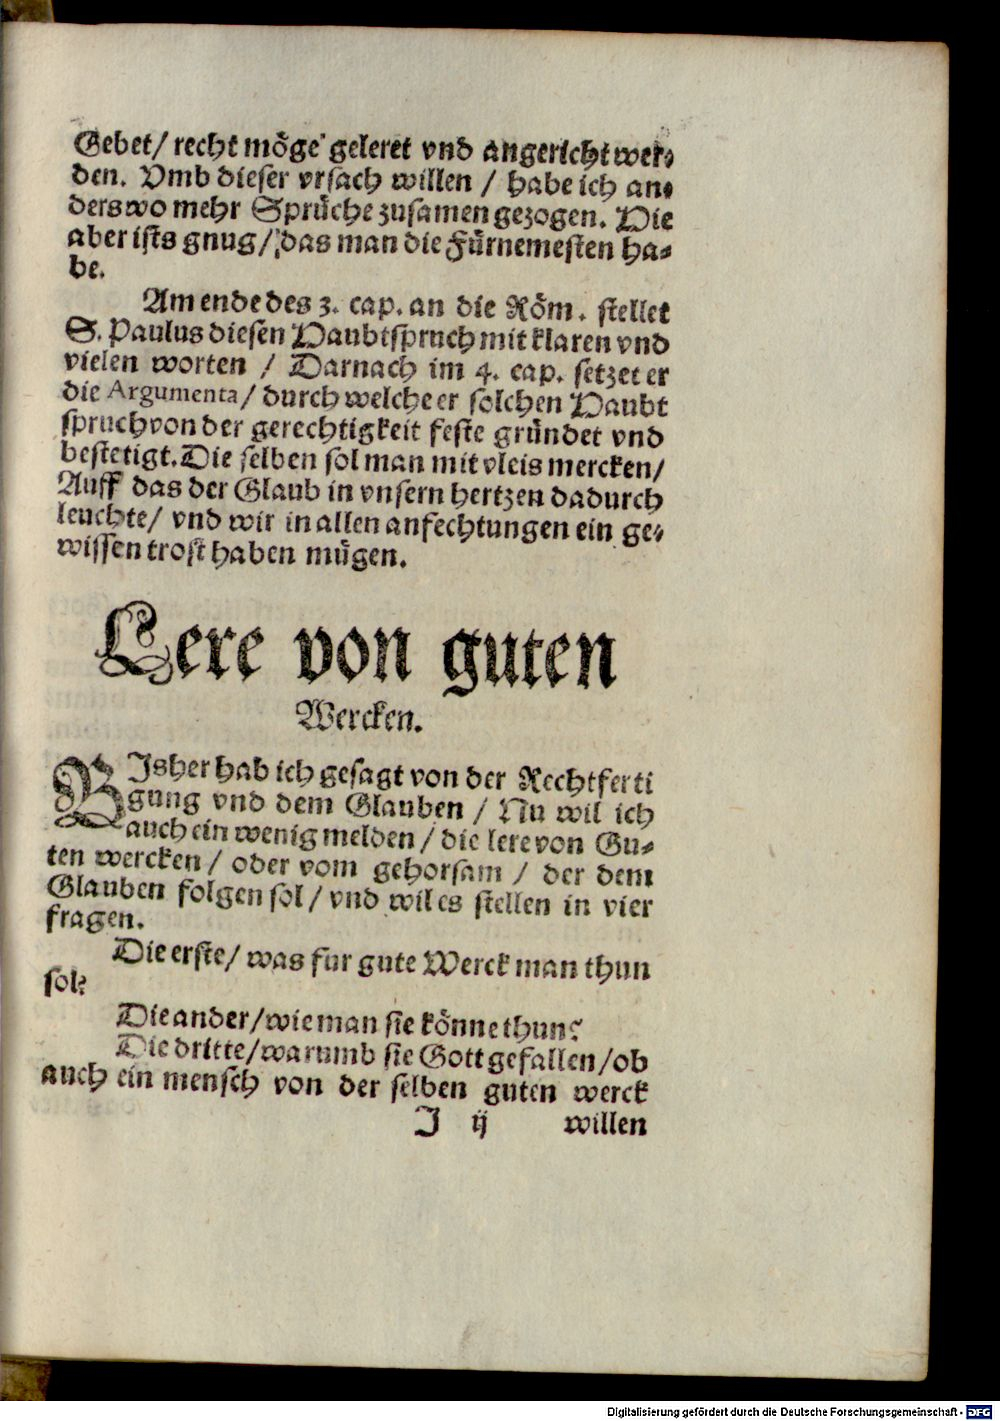 Gebet/ recht möge geleret vnd angericht wer⸗
den. Vmb dieser vrsach willen / habe ich an⸗
derswo mehr Sprüche zusamen gezogen. Hie
aber ists gnug/ das man die Fürnemesten ha⸗
be.
Am ende des 3. cap. an die Röm. stellet
S. Paulus diesen Haubtspruch mit klaren vnd
vielen worten / Darnach im 4. cap. setzet er
die Argumenta/ durch welche er solchen Haubt
spruch von der gerechtigkeit feste gründet vnd
bestetigt. Die selben sol man mit vleis mercken/
Auff das der Glaub in vnsern hertzen dadurch
leuchte/ vnd wir in allen anfechtungen ein ge⸗
wissen trost haben mügen.
Lere von guten
Wercken.
BJsher hab ich gesagt von der Rechtferti
gung vnd dem Glauben / Nu wil ich
auch ein wenig melden / die lere von Gu⸗
ten wercken / oder vom gehorsam / der dem
Glauben folgen sol / vnd wil es stellen in vier
fragen.
Die erste/ was fur gute Werck man thun
sol?
Die ander/ wie man sie könne thun?
Die dritte/ warumb sie Gott gefallen/ ob
auch ein mensch von der selben guten werck
J ij willen
Digitalisierung gefördert durch die Deutsche Forschungsgemeinschaft - DFG